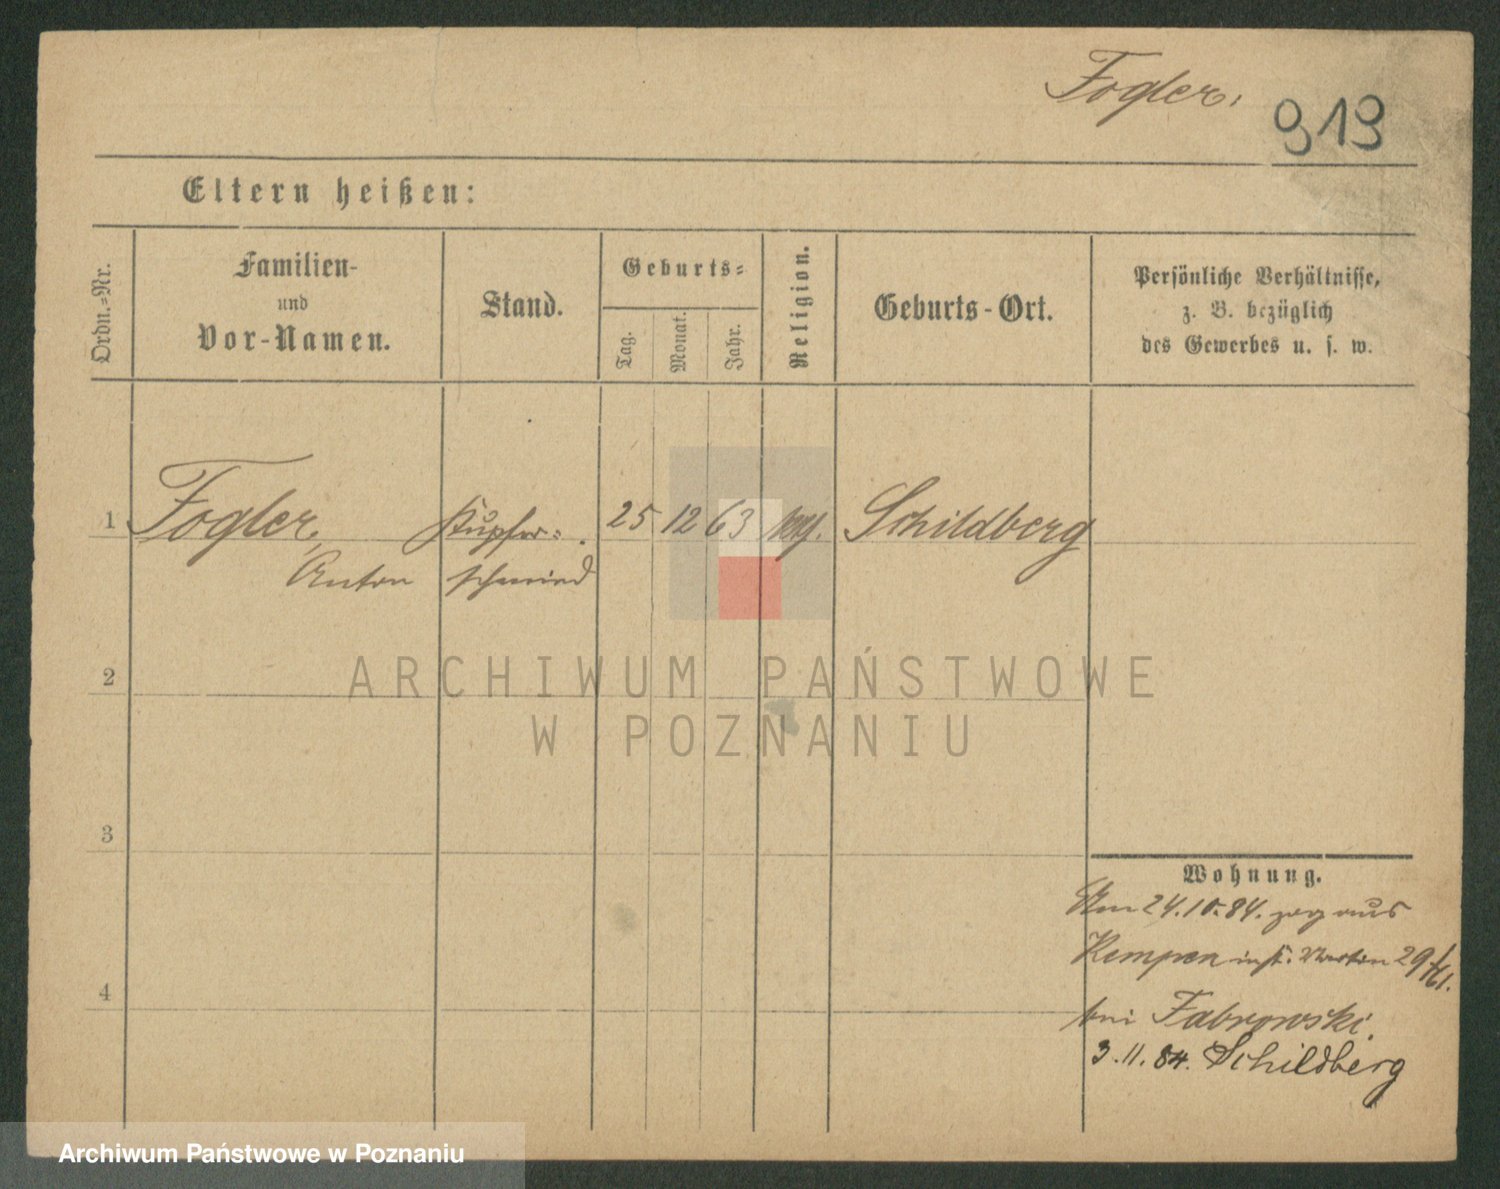 Fogler,
919
Eltern heißen:
Ordn.=Nr.
Familien-
und
Vor-Namen.
Stand.
Geburts=
Tag.
Monat.
Jahr.
Religion.
Geburts-Ort.
Persönliche Verhältnisse,
z. B. bezüglich
des Gewerbes u. s. w.
1 Fogler, Kupfer= 25 12 63 Schildberg
Anton schmied
2
3
4
Wohnung.
Am 24.10.84. zog aus
Kempen Martin 29
bei Fabrowski.
3.11.84. Schildberg
ARCHIWUM PAŃSTWOWE
W POZNANIU
Archiwum Państwowe w Poznaniu